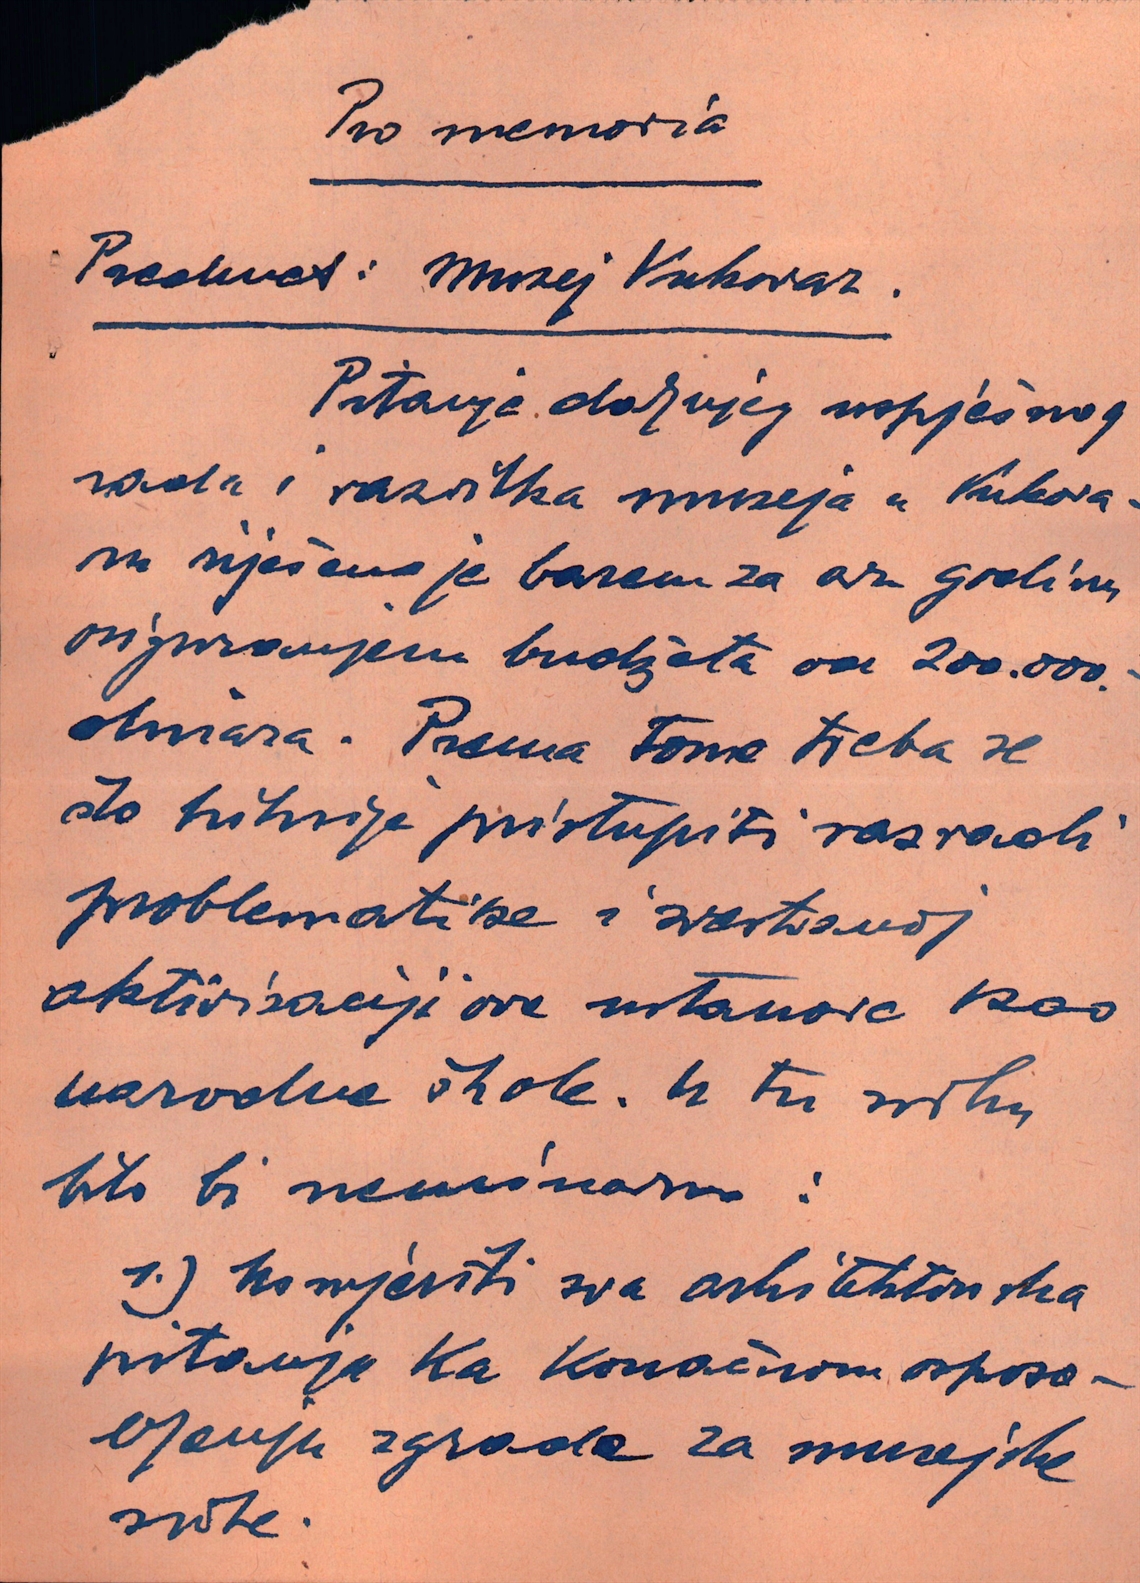 Pro memoria
Predmet: Muzej Vukovar.
Pitanje daljnjeg uspješnog
rada i razvitka muzeja u Vukova-
ru riješeno je barem za ovu godinu
osiguranjem budžeta od 200.000.-
dinara. Prema tome treba se
što hitnije pristupiti razradi
problematike i svestranoj
aktivizaciji ove ustanove kao
narodne škole. U tu svrhu
bilo bi neminovno:
1.) Usmjeriti sva arhitektonska
pitanja ka konačnom osposo-
bljenju zgrade za muzejske
svrhe.